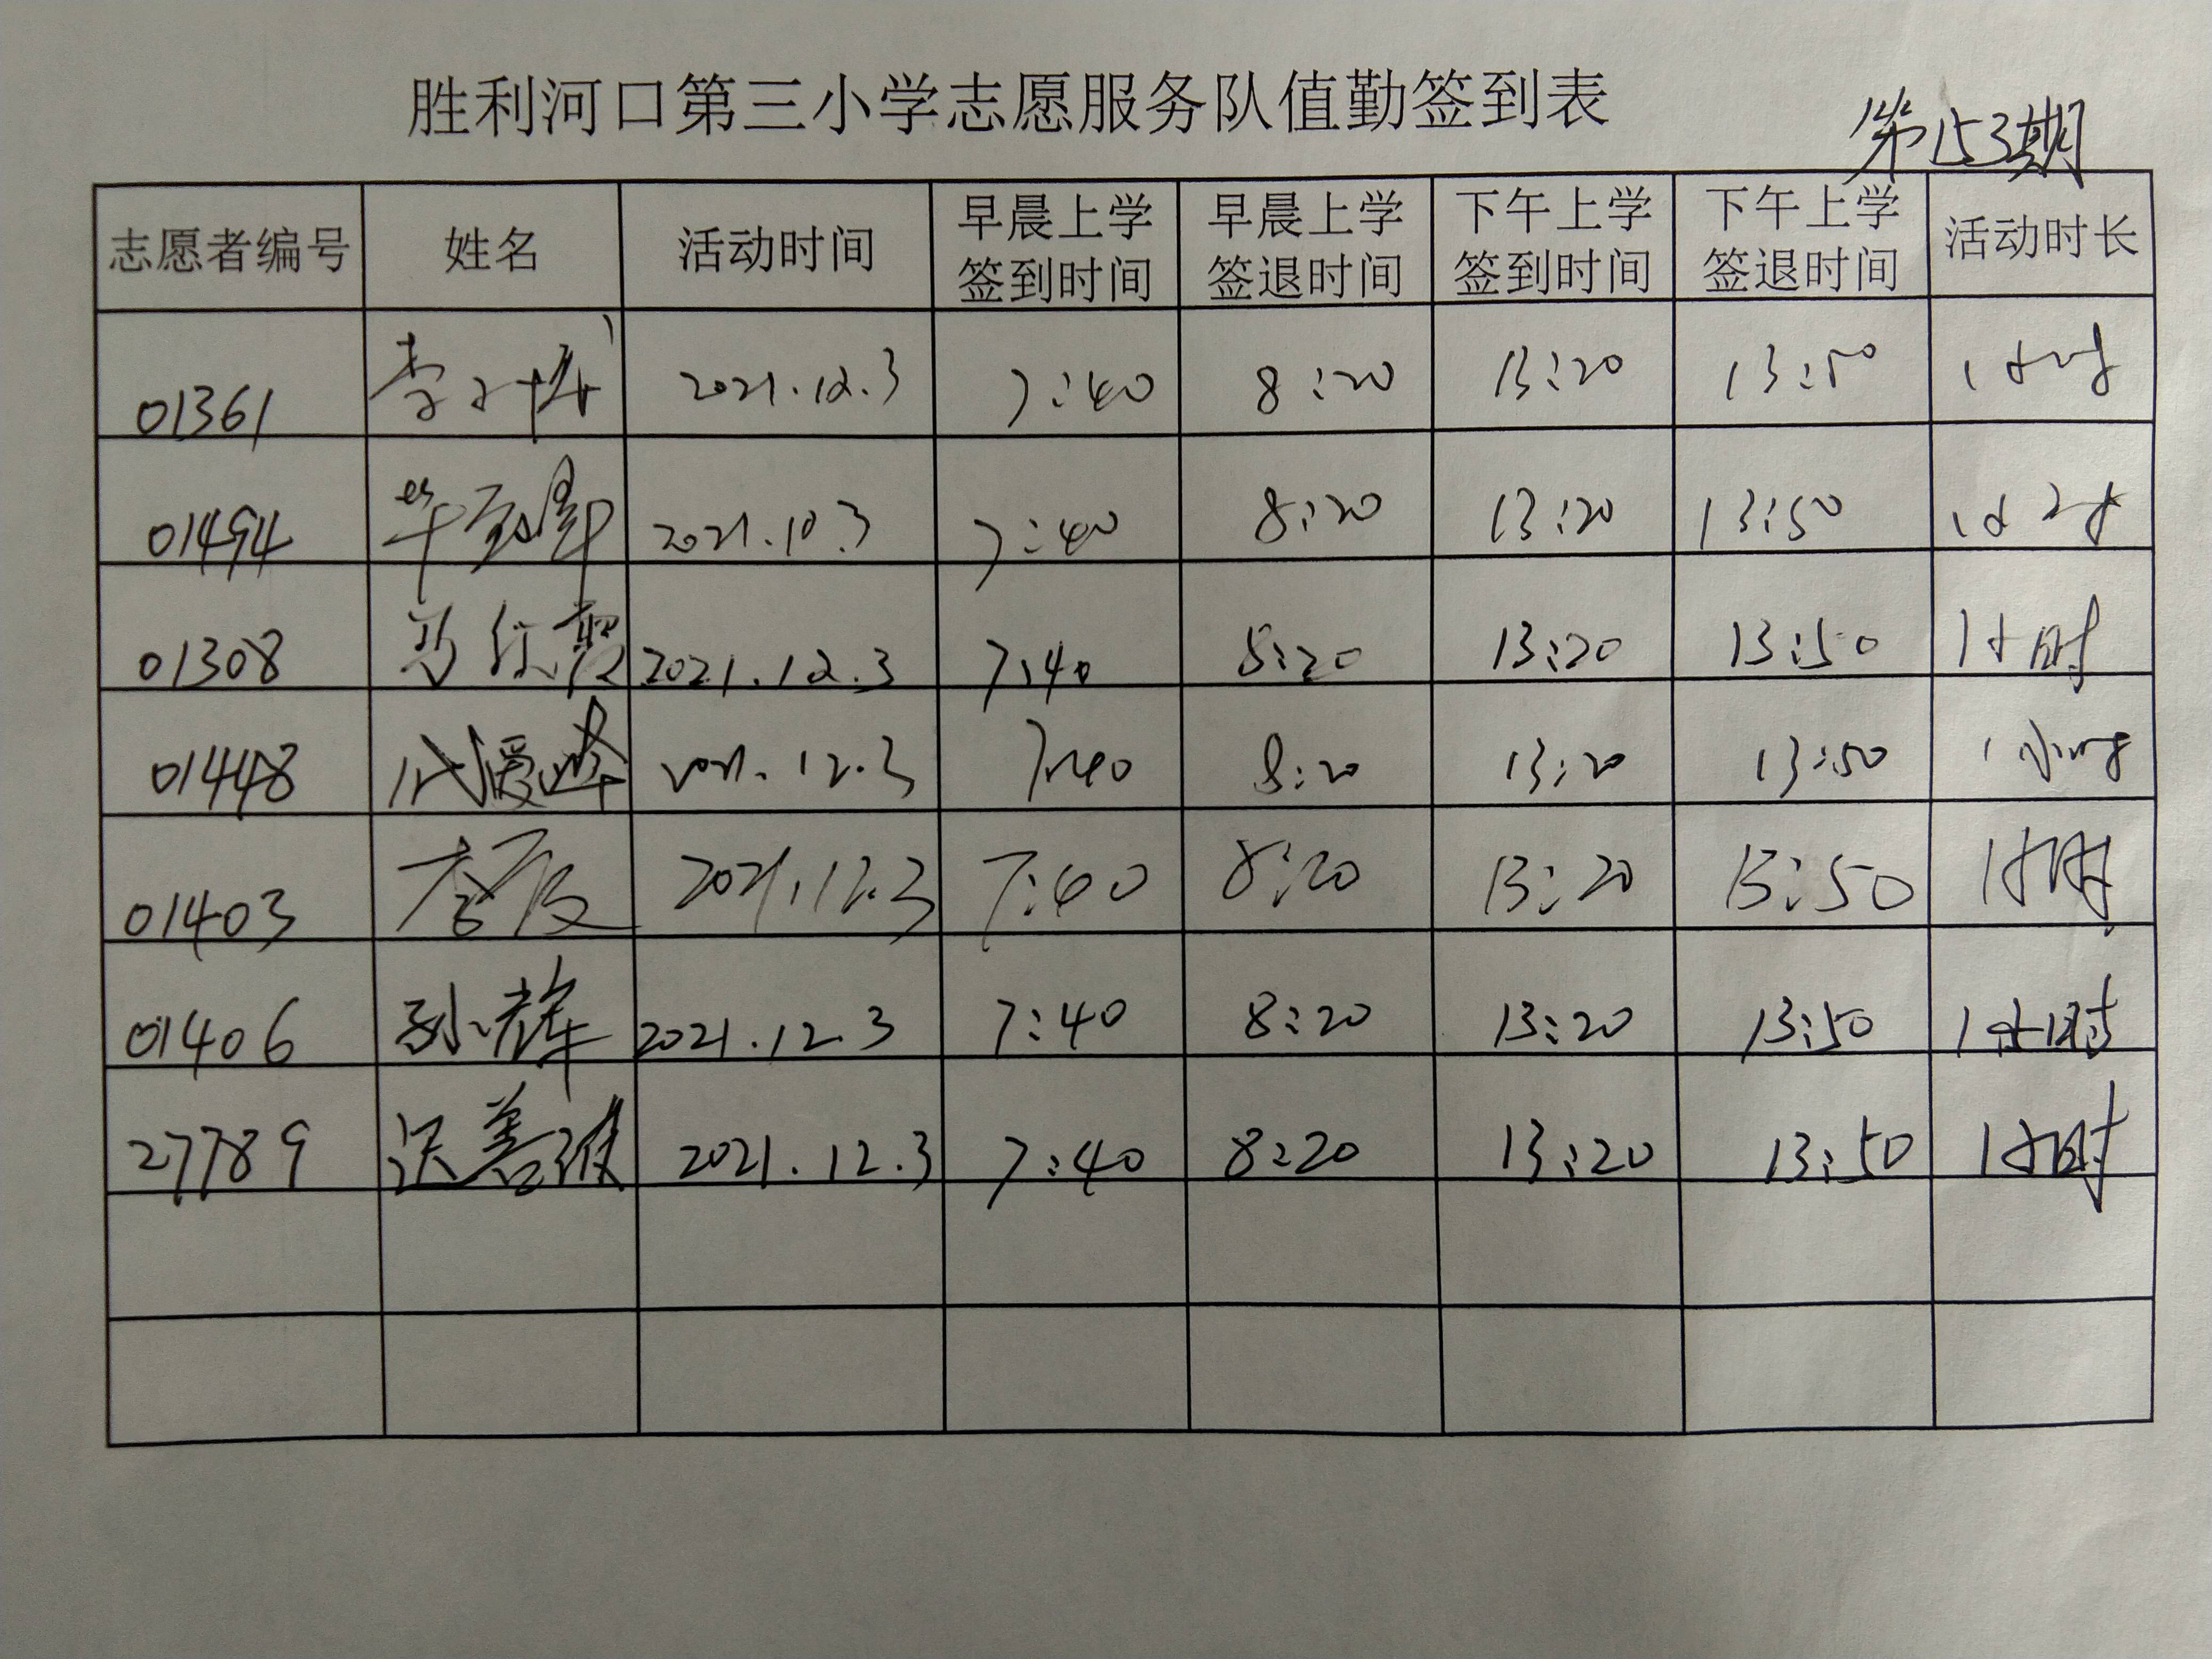 胜利河口第三小学志愿服务队值勤签到表
第153期
志愿者编号 姓名 活动时间 早晨上学签到时间 早晨上学签退时间 下午上学签到时间 下午上学签退时间 活动时长
01361 李 2021.12.3 7:40 8:20 13:20 13:50 1小时
01494 2021.10.3 7:40 8:20 13:20 13:50 1小时
01308 2021.12.3 7:40 8:20 13:20 13:50 1小时
01448 爱 2021.12.3 7:40 8:20 13:20 13:50 1小时
01403 李 2021.12.3 7:40 8:20 13:20 13:50 1小时
01406 孙耀 2021.12.3 7:40 8:20 13:20 13:50 1小时
27789 善 2021.12.3 7:40 8:20 13:20 13:50 1小时